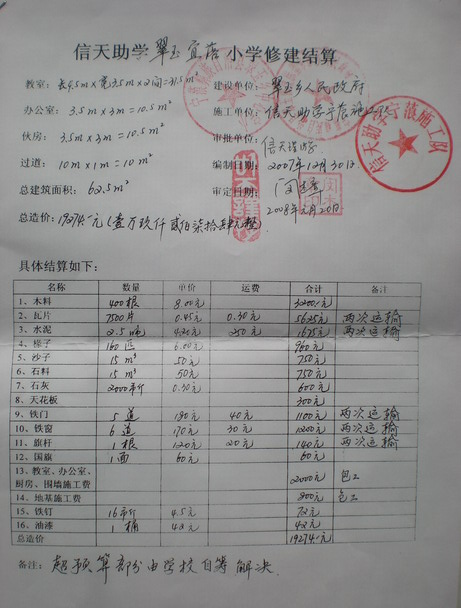 信天助学翠玉宜底小学修建结算
教室: 长4.5m×宽3.5m×2间=31.5m² 建设单位: 翠玉乡人民政府
办公室: 3.5m×3m=10.5m² 施工单位: 信天助学宁蒗施工队
伙房: 3.5m×3m=10.5m² 审批单位: 信天
过道: 10m×1m=10m² 编制日期: 2007年12月30日
总建筑面积: 62.5m² 审定日期: 2008年2月20日
总造价: 19274.-元(壹万玖仟贰佰柒拾肆元整)
信天助学宁蒗施工队
具体结算如下:
名称 数量 单价 运费 合计 备注
1、木料 400根 8.00元 3200元
2、瓦片 7500片 0.45元 0.30元 5625元 两次运输
3、水泥 2.5吨 420元 250元 1675元 两次运输
4、椽子 160匹 6.00元 960元
5、沙子 15m³ 50元 750元
6、石料 15m³ 50元 750元
7、石灰 2000市斤 0.30元 600元
8、天花板 300元
9、铁门 5道 180元 40元 1100元 两次运输
10、铁窗 6道 170元 30元 1200元 两次运输
11、旗杆 1根 120元 20元 140元 两次运输
12、国旗 1面 60元 60元
13、教室、办公室、
厨房、围墙施工费 2000元 包工
14、地基施工费 800元 包工
15、铁钉 16市斤 4.5元 72元
16、油漆 1桶 42元 42元
总造价 19274.-元
备注: 超预算部分由学校自筹解决.